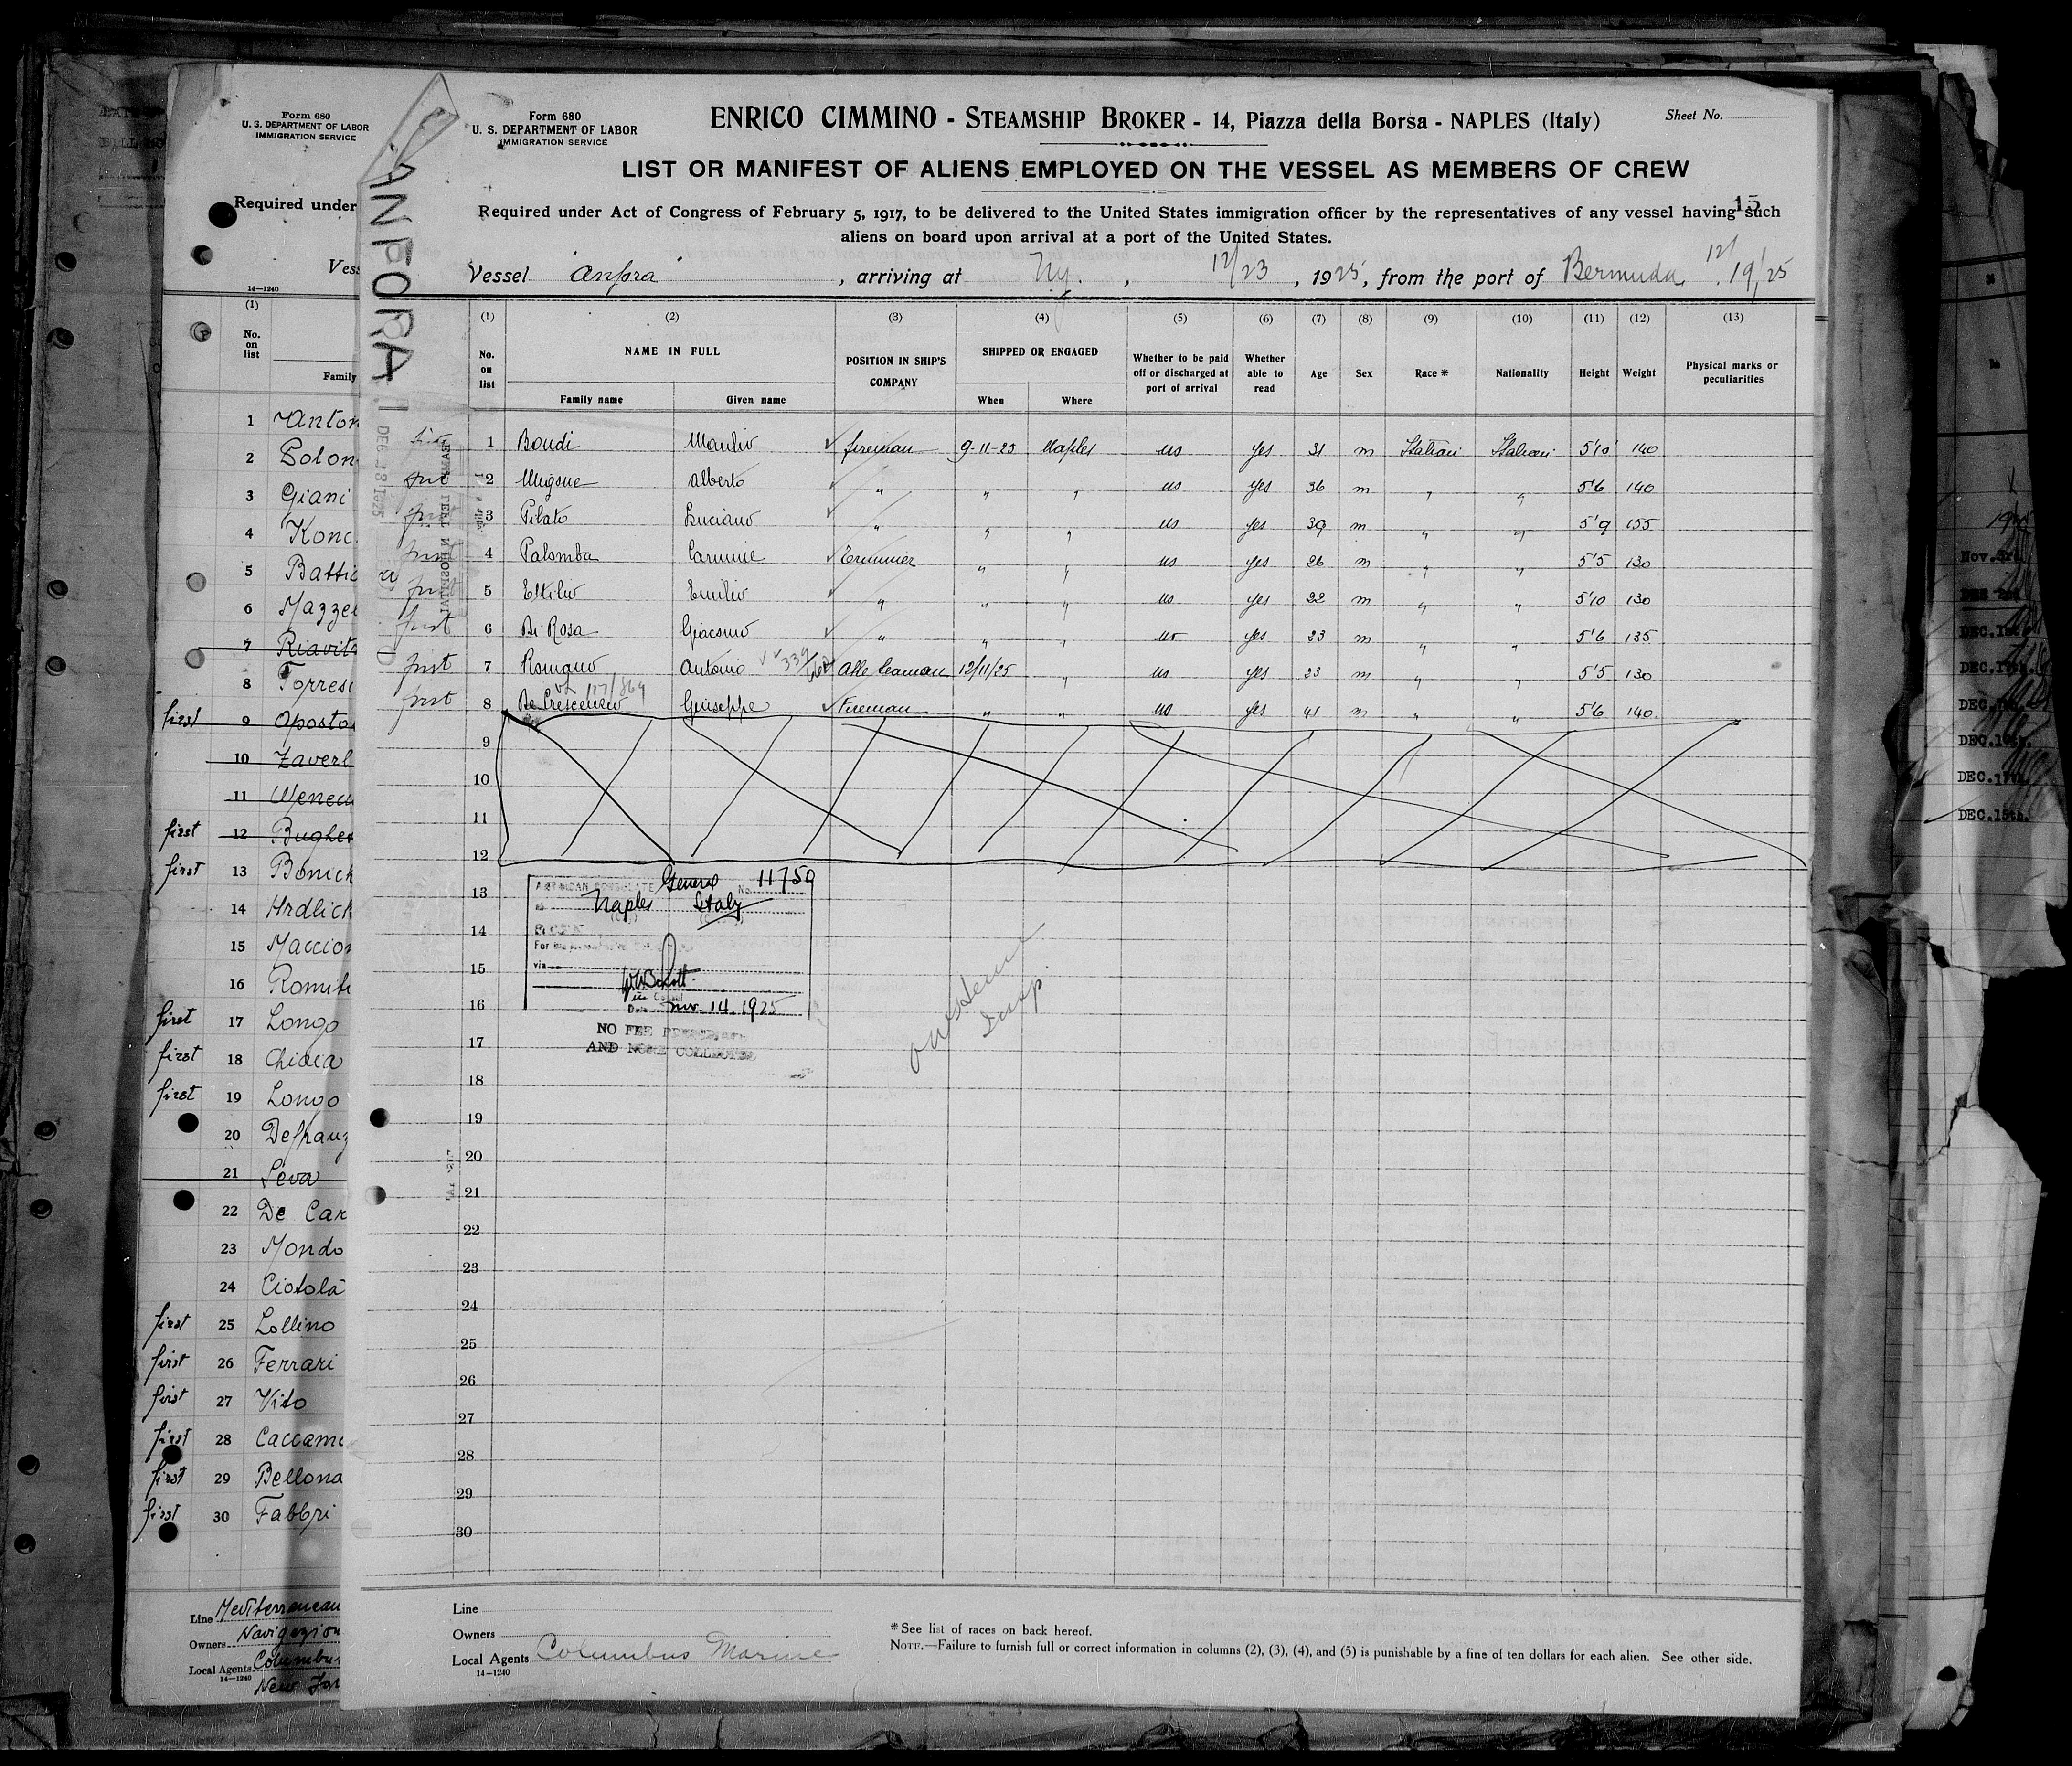 Form 680
U. S. DEPARTMENT OF LABOR
IMMIGRATION SERVICE
Required under
14—1240
(1)
No. on list
Family
1 Anton
2 Bolon
3 Giani
4 Konc
5 Battic
6 Mazze
7 Riavit
8 Torresi
first 9 Aposto
10 Zaverl
11 Menecu
first 12 Bugher
first 13 Bonich
14 Hrdlick
15 Maccion
16 Romit
first 17 Longo
first 18 Chiaia
first 19 Longo
20 Defranz
21 Seva
22 De Car
23 Mondo
24 Ciotola
first 25 Lollino
first 26 Ferrari
first 27 Vito
first 28 Caccam
first 29 Bellona
first 30 Fabbri
Line Mediterranean
Owners Navigazion
Local Agents Columbus
14—1240 New
ANFORA
DEC 23 1925
Form 680
U. S. DEPARTMENT OF LABOR
IMMIGRATION SERVICE
ENRICO CIMMINO - STEAMSHIP BROKER - 14, Piazza della Borsa - NAPLES (Italy)
Sheet No.
LIST OR MANIFEST OF ALIENS EMPLOYED ON THE VESSEL AS MEMBERS OF CREW
15
Required under Act of Congress of February 5, 1917, to be delivered to the United States immigration officer by the representatives of any vessel having such
aliens on board upon arrival at a port of the United States.
Vessel Anfora, arriving at Ny., 12/23, 1925, from the port of Bermuda, 12/19/25
(1) (2) (3) (4) (5) (6) (7) (8) (9) (10) (11) (12) (13)
No. on list NAME IN FULL POSITION IN SHIP'S COMPANY SHIPPED OR ENGAGED Whether to be paid off or discharged at port of arrival Whether able to read Age Sex Race * Nationality Height Weight Physical marks or peculiarities
Family name Given name When Where
1 Bondi Manlio fireman 9-11-25 Naples no yes 31 m Italian Italian 5'10 140
first 2 Mignue Alberto " " " no yes 36 m " " 5'6 140
first 3 Pilato Luciano " " " no yes 39 m " " 5'9 155
first 4 Palomba Carmine Trimmer " " no yes 26 m " " 5'5 130
first 5 Ettilio Emilio " " " no yes 22 m " " 5'10 130
first 6 Di Rosa Giacomo " " " no yes 23 m " " 5'6 135
first 7 Romano Antonio Able seaman 12/11/25 " no yes 23 m " " 5'5 130
first 8 De Crescenzo Giuseppe Fireman " " no yes 41 m " " 5'6 140
9
10
11
12
13
14
15
16
17
18
19
20
21
22
23
24
25
26
27
28
29
30
AMERICAN CONSULATE General No. 11759
Naples Italy
For
via
Date Nov. 14. 1925
NO FEE PRESCRIBED
AND NONE COLLECTED
Insp.
Line
Owners
Local Agents Columbus Marine
14—1240
*See list of races on back hereof.
NOTE.—Failure to furnish full or correct information in columns (2), (3), (4), and (5) is punishable by a fine of ten dollars for each alien. See other side.
Nov. 3rd.
DEC. 17th.
DEC. 17th.
DEC. 15th.